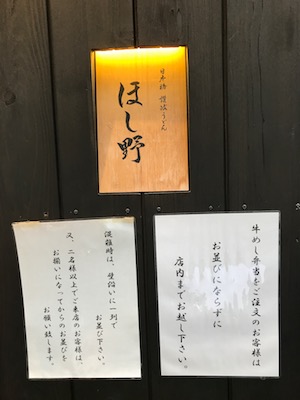 日本橋 讃岐うどん
ほし野
混雑時は、壁沿いに一列で
お並び下さい。
又、二名様以上でご来店のお客様は、
お揃いになってからのお並びを
お願い致します。
牛めし弁当をご注文のお客様は
お並びにならずに
店内までお越し下さい。